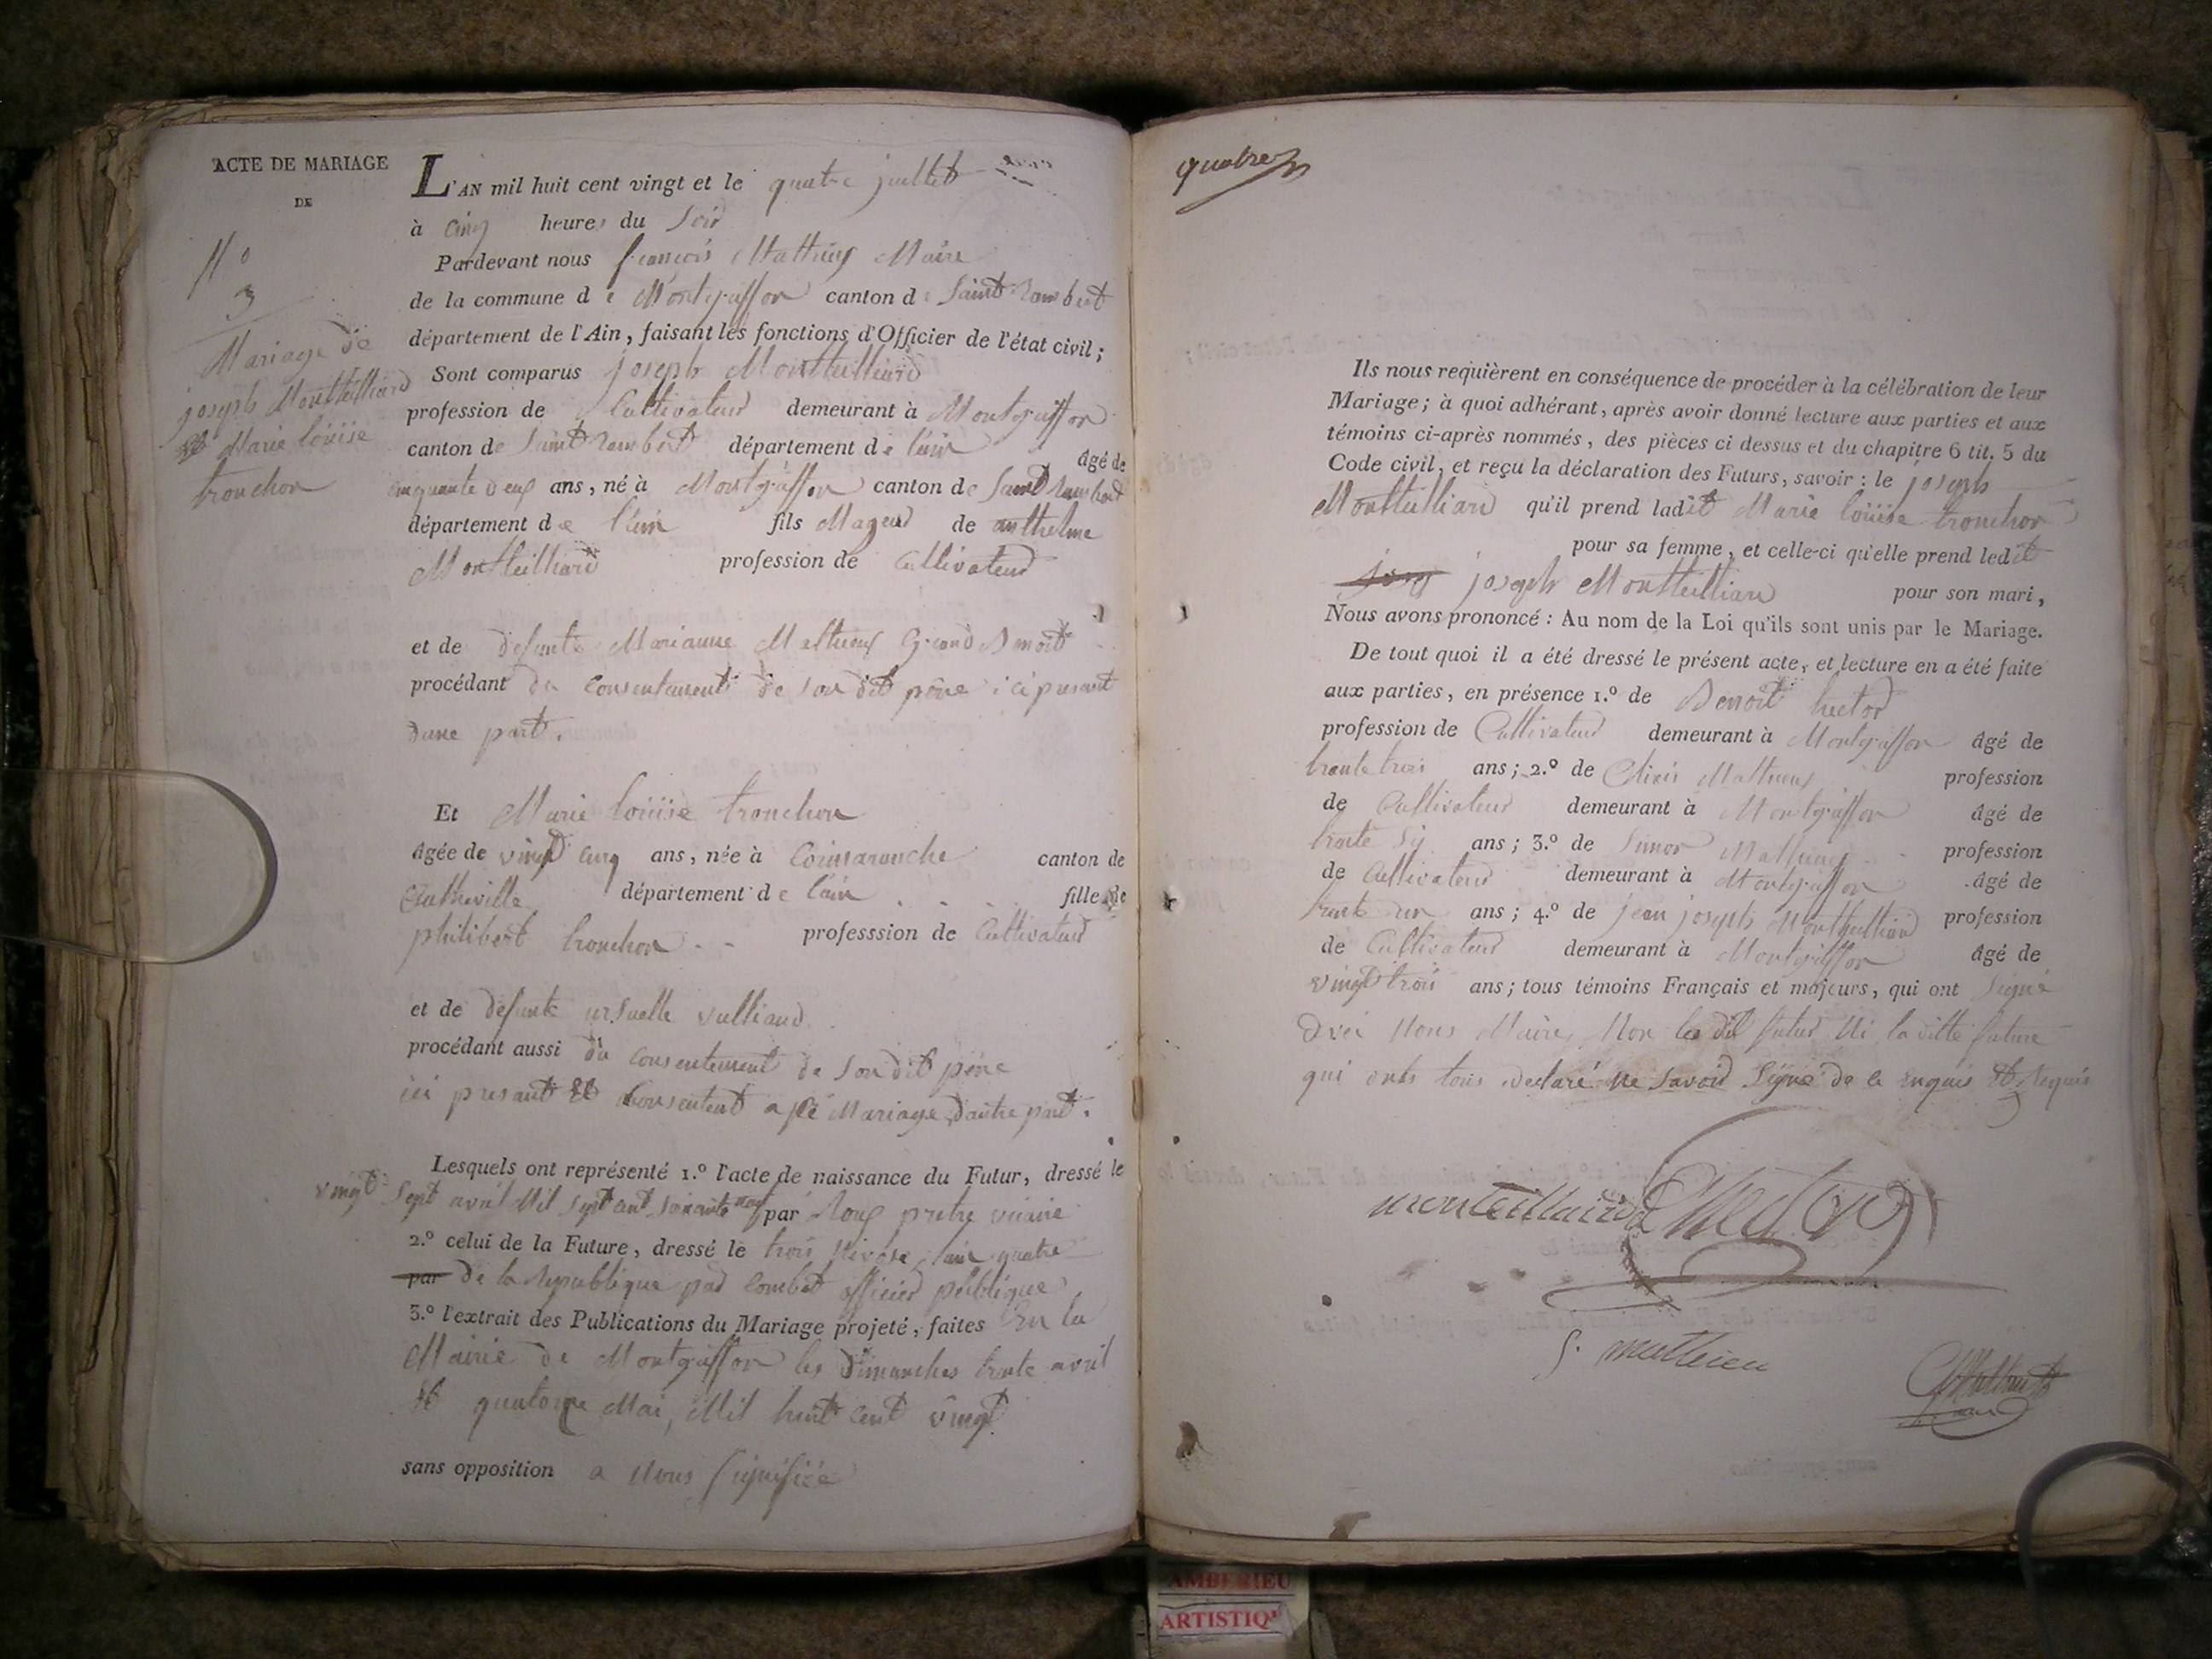 ACTE DE MARIAGE
DE
N°
3
Mariage de
joseph Montteilliard
et Marie louise
tronchon
L'AN mil huit cent vingt et le quatre juillet
à cinq heures du soir
Pardevant nous françois Matthieux Maire
de la commune de Montgriffon canton de Saint rambert
département de l'Ain, faisant les fonctions d'Officier de l'état civil;
Sont comparus joseph Montteilliard
profession de Cultivateur demeurant à Montgriffon
canton de Saint rambert département de l'ain âgé de
cinquante deux ans, né à Montgriffon canton de Saint rambert
département de l'ain fils Mageur de anthelme
Montteilliard profession de Cultivateur
et de defunte Marianne Mathieux Grand Benoit
procédant du Consentement de son dit père ici presant
dune part.
Et Marie louise tronchon
âgée de vingt cinq ans, née à Cormaranche canton de
hauteville département de l'ain fille de
philibert tronchon professsion de Cultivateur
et de defunte ursuelle vulliand
procédant aussi du consentement de son dit père
ici presant et Consentent a ce Mariage d'autre part.
Lesquels ont représenté 1.º l'acte de naissance du Futur, dressé le
vingt Sept avril Mil Sept cent soixante par Roux pretre vicaire
2.º celui de la Future, dressé le trois Nivose l'an quatre
par de la Republique par Combet officier publique
3.º l'extrait des Publications du Mariage projeté, faites En la
Mairie de Montgriffon les dimanches trente avril
et quatorze Mai, Mil huit cent vingt
sans opposition a Nous signifiée
quatre
Ils nous requièrent en conséquence de procéder à la célébration de leur
Mariage; à quoi adhérant, après avoir donné lecture aux parties et aux
témoins ci-après nommés, des pièces ci dessus et du chapitre 6 tit. 5 du
Code civil, et reçu la déclaration des Futurs, savoir: le joseph
Montteilliard qu'il prend ladit Marie louise tronchon
pour sa femme, et celle-ci qu'elle prend ledit
joseph Montteilliard pour son mari,
Nous avons prononcé: Au nom de la Loi qu'ils sont unis par le Mariage.
De tout quoi il a été dressé le présent acte, et lecture en a été faite
aux parties, en présence 1.º de Benoit hector
profession de Cultivateur demeurant à Montgriffon âgé de
trante trois ans; 2.º de Mathieux profession
de Cultivateur demeurant à Montgriffon âgé de
trante six ans; 3.º de Simon Mathieux profession
de Cultivateur demeurant à Montgriffon âgé de
trente un ans; 4.º de jean joseph Montteilliard profession
de Cultivateur demeurant à Montgriffon âgé de
vingt trois ans; tous témoins Français et majeurs, qui ont signé
avec Nous Maire, Non le dit futur Ni la ditte future
qui onts tous declaré ne savoir signé de ce enquis et requis
monteillaird Hector
S. mathieu
AMBERIEU
ARTISTIQ